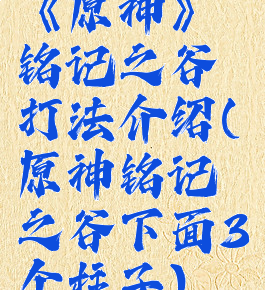 《原神》
铭记之谷
打法介绍(
原神铭记
之谷下面3
个柱子)